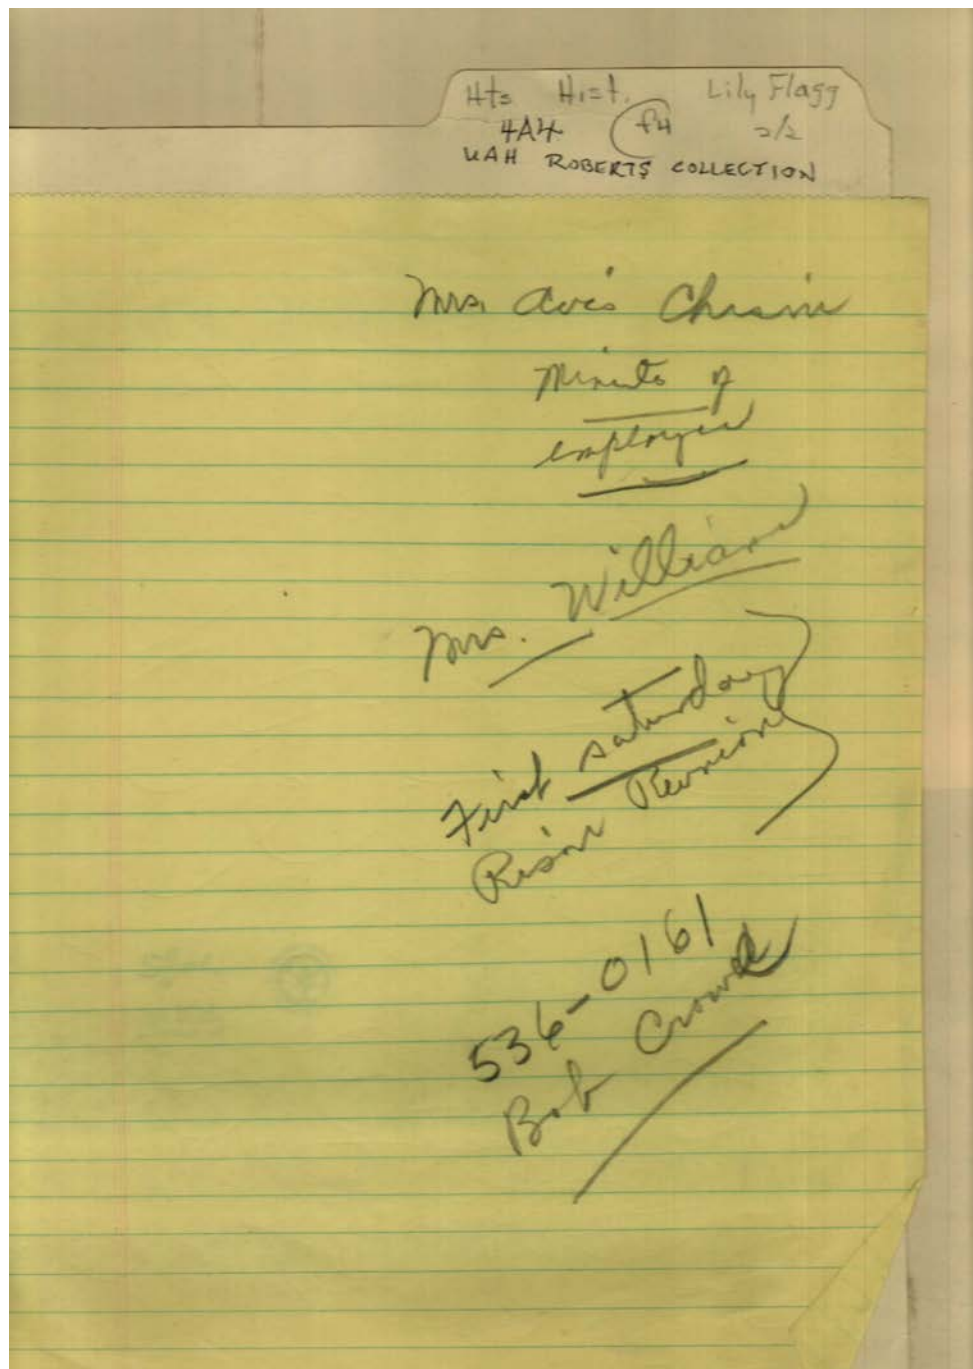 Hts Hist. Lily Flagg
4A4 f4 2/2
UAH ROBERTS COLLECTION
Mrs. Avis
Minute of
employee
Mrs. William
First saturday
Rison Reunion
536-0161
Bob